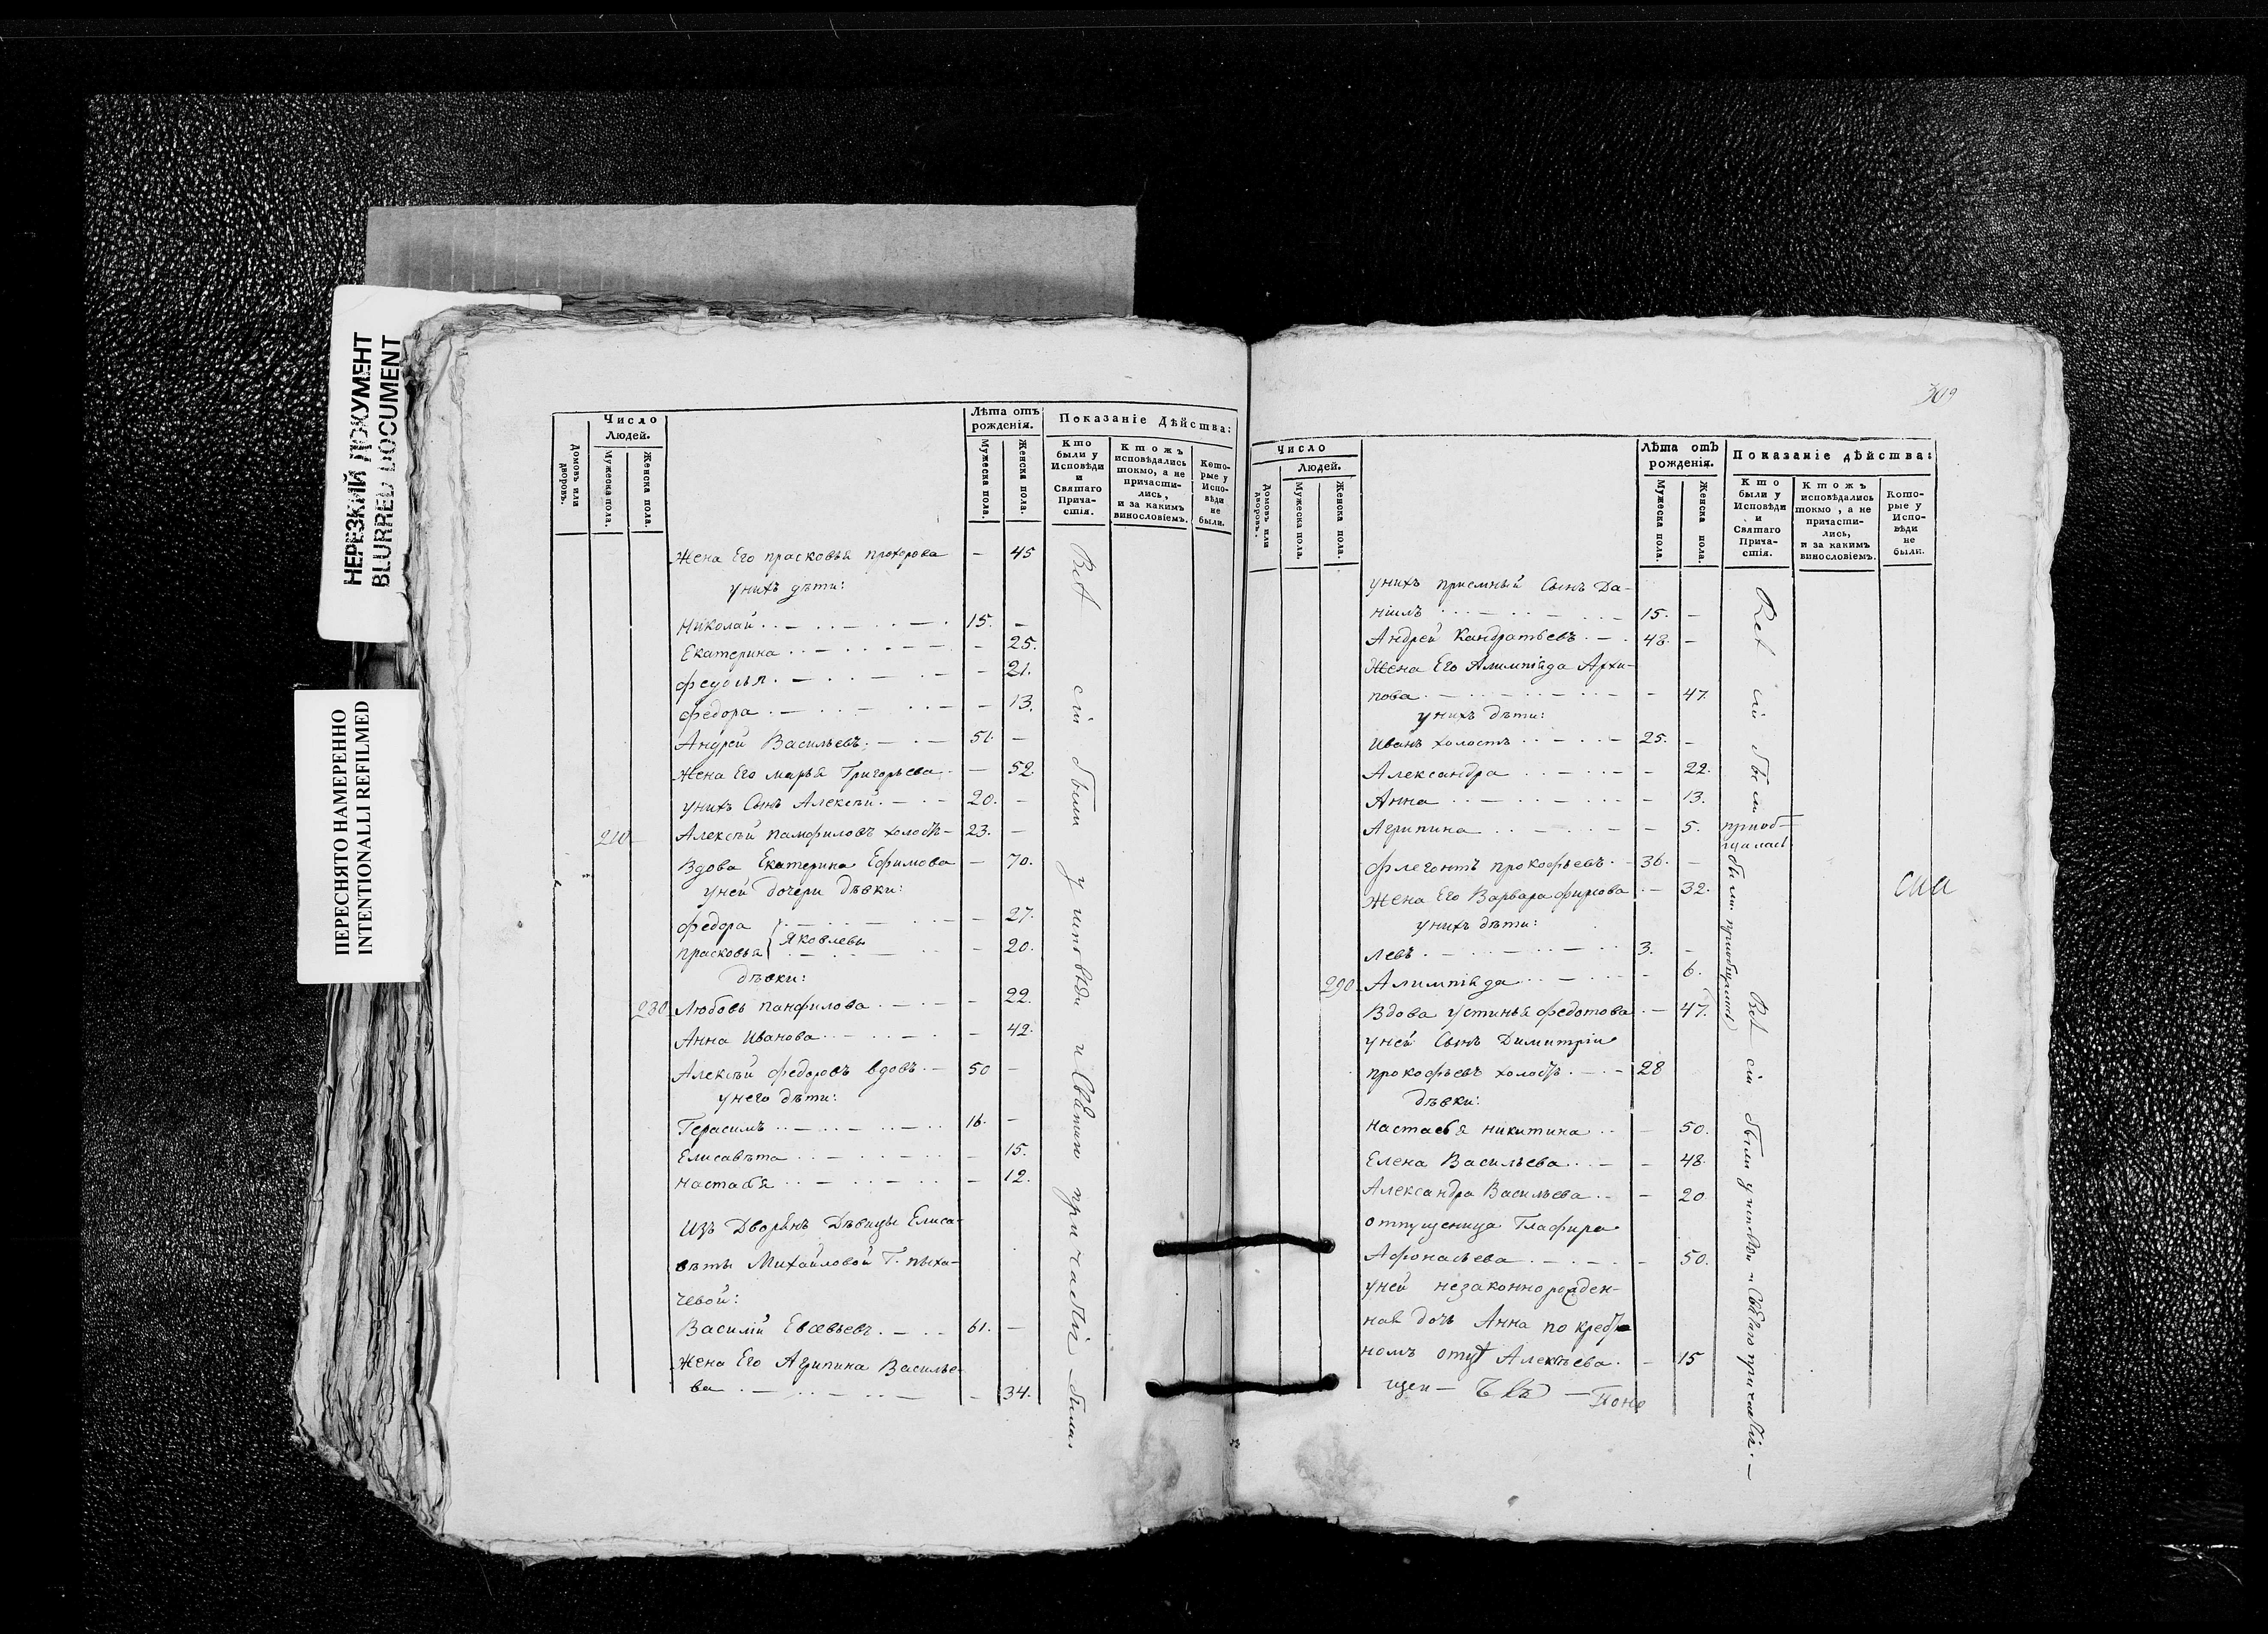 НЕРЕЗКИЙ ДОКУМЕНТ
BLURRED DOCUMENT
ПЕРЕСНЯТО НАМЕРЕННО
INTENTIONALLI REFILMED
Число
Людей.
Домовъ или дворовъ.
Мужеска пола.
Женска пола.
Лѣта отъ рожденія.
Мужеска пола.
Женска пола.
Показаніе Дѣйства:
Кто были у Исповѣди и Святаго Причастія.
Ктожъ исповѣдались токмо, а не причастились, и за какимъ винословіемъ.
Которые у Исповѣди не были.
Жена Его прасковья прохорова - 45
унихъ дѣти:
Николай 15. -
Екатерина - 25.
феуонья - 21.
федора - 13.
Андрей Васильевъ 51. -
Жена Его марья Григорьева - 52.
унихъ Сынъ Алексѣй 20. -
210 Алексѣй памфиловъ холостъ 23. -
Вдова Екатерина Ефимова - 70.
уней дочери дѣвки:
федора - 27.
Яковлевы
прасковья - 20.
дѣвки:
230 Любовь панфилова - 22.
Анна Иванова - 42.
Алексѣй федоровъ вдовъ 50 -
унего дѣти:
Герасимъ 16. -
Елисавѣта - 15.
настасья - 12.
Изъ Дворянъ Дѣвицы Елиса-
вѣты Михайловой Г. пыха-
чевой:
Василій Евсѣвьевъ 61. -
Жена Его Агрипина Василье-
ва - 34.
Всѣ сіи были у исповѣди и Святаго причастія были
309
Число
Людей.
Домовъ или дворовъ.
Мужеска пола.
Женска пола.
Лѣта отъ рожденія.
Мужеска пола.
Женска пола.
Показаніе дѣйства:
Кто были у Исповѣди и Святаго Причастія.
Ктожъ исповѣдались токмо, а не причастились, и за какимъ винословіемъ.
Которые у Исповѣди не были.
унихъ приемный Сынъ Да-
ніилъ 15. -
Андрей Кандратьевъ 48. -
Жена Его Алимпіада Архи-
пова - 47.
унихъ дѣти:
Иванъ холостъ 25. -
Александра - 22.
Анна - 13.
Агрипина - 5.
флегонтъ прокофьевъ 36. -
Жена Его Варвара фирсова - 32.
унихъ дѣти:
левъ 3. -
290 Алимпіада - 6.
Вдова устинья федотова - 47.
уней Сынъ Димитріи
прокофьевъ холостъ 28
дѣвки:
настасья никитина - 50.
Елена Васильева - 48.
Александра Васильева - 20
отпущеница Глафира
Афонасьева - 50.
уней незаконнорожден-
ная дочь Анна по крест-
номъ отцѣ Алексѣева - 15
Всѣ сіи были
приоб-
щалась
были приобщались
Всѣ сіи были уисповѣди и Святаго причастія.